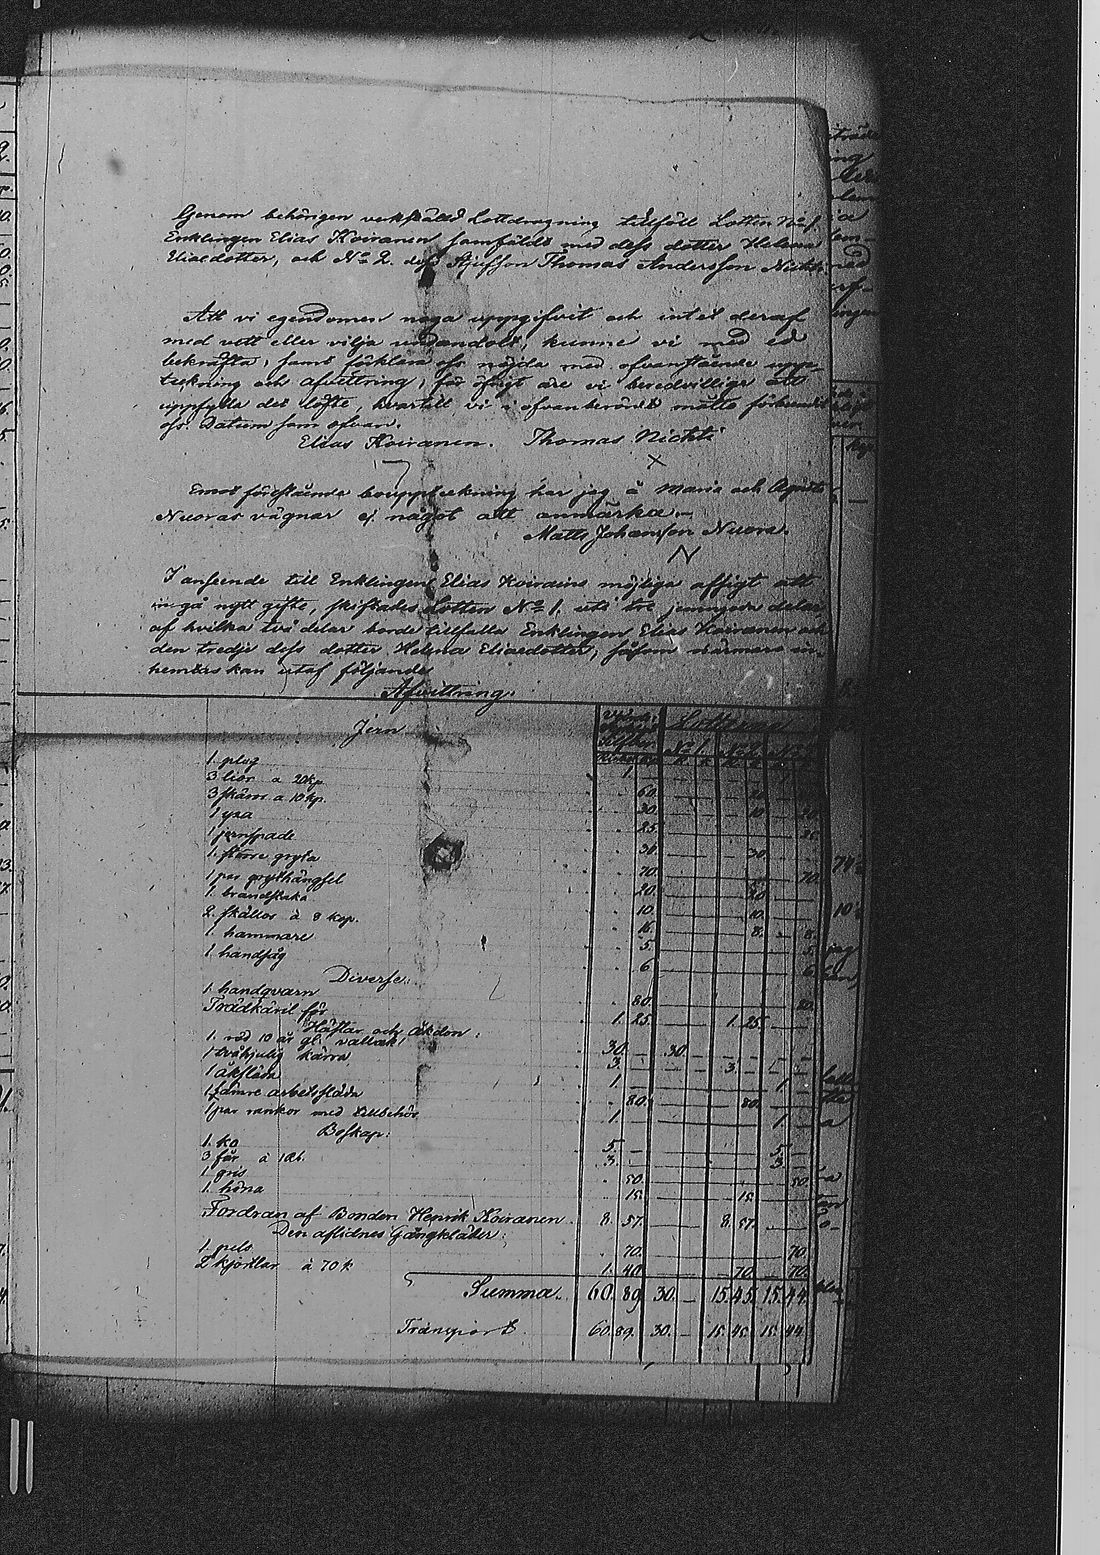 Genom behörigen verkställd Lottdragning tillföll Lotten No 1.
Enklingen Elias Koiranen samfäldt med dess dotter Helena
Eliaedotter, och No 2. dess Styfson Thomas Andersson Nichti
Att vi egendomen noga uppgifvit och intet deraf
med vett eller vilja undandolt, kunne vi med ed
bekräfta, samt förklara oss nöjda med ofvanstående upp-
teckning och afvittring, för öfrigt äre vi beredvillige att
uppfylla det löfte, hvartill vi i ofvanberörde måtto förbundit
oss. Datum som ofvan.
Elias Koiranen. Thomas Nichti
Emot förestående bouppteckning har jag å Maria och
Nuoras vägnar ej något att anmärka.
Matts Johansson Nuora.
I anseende till Enklingens Elias Koirains möjliga afsigt att
ingå nytt gifte, skiftades Lotten No 1. uti tre jemngoda delar
af hvilka två delar borde tillfalla Enklingen Elias Koiranen och
den tredje dess dotter Helena Eliaedotter, såsom närmare in-
hemtas kan utaf följande
Afvittring.
Jern Lotterna
No 1. No 2.
1. plog 1. —
3 liar a 20 kp. 60.
3 skäror a 10 kp. 30. 10 20
1 yxa 25. 25
1 jernspade 30 30.
1. större gryta 70. 70.
1 par grythängsel 20. 20
1. brandstaka 10. 10.
2. skållor à 8 kop. 16. 8. 8
1. hammare 5. 5
1. handsåg 6 6
Diverse:
1. handqvarn 80. 80.
Trädkäril för 1. 25. 1. 25.
Hästar och åkdon:
1. röd 10 år gl. vallack 30. — 30. —
1 tvåhjulig kärra 3. — 3. —
1 åksläda 1 — 1 —
1 sämre arbetssläda 80. 80.
1 par rankor med tillbehör 1 — 1 —
Boskap:
1. ko 5. — 5. —
3 får à 1 Rb. 3. — 3 —
1. gris 50. 50.
1. höna 15. 15.
Fordran af Bonden Henrik Koiranen 8. 57. 8. 57.
Den aflidnes Gångkläder:
1. pels 70. 70.
2 kjortlar à 70 k 1. 40. 70. 70.
Summa 60. 89. 30. — 15.45. 15.44.
Transport 60. 89. 30. — 15.45. 15.44.